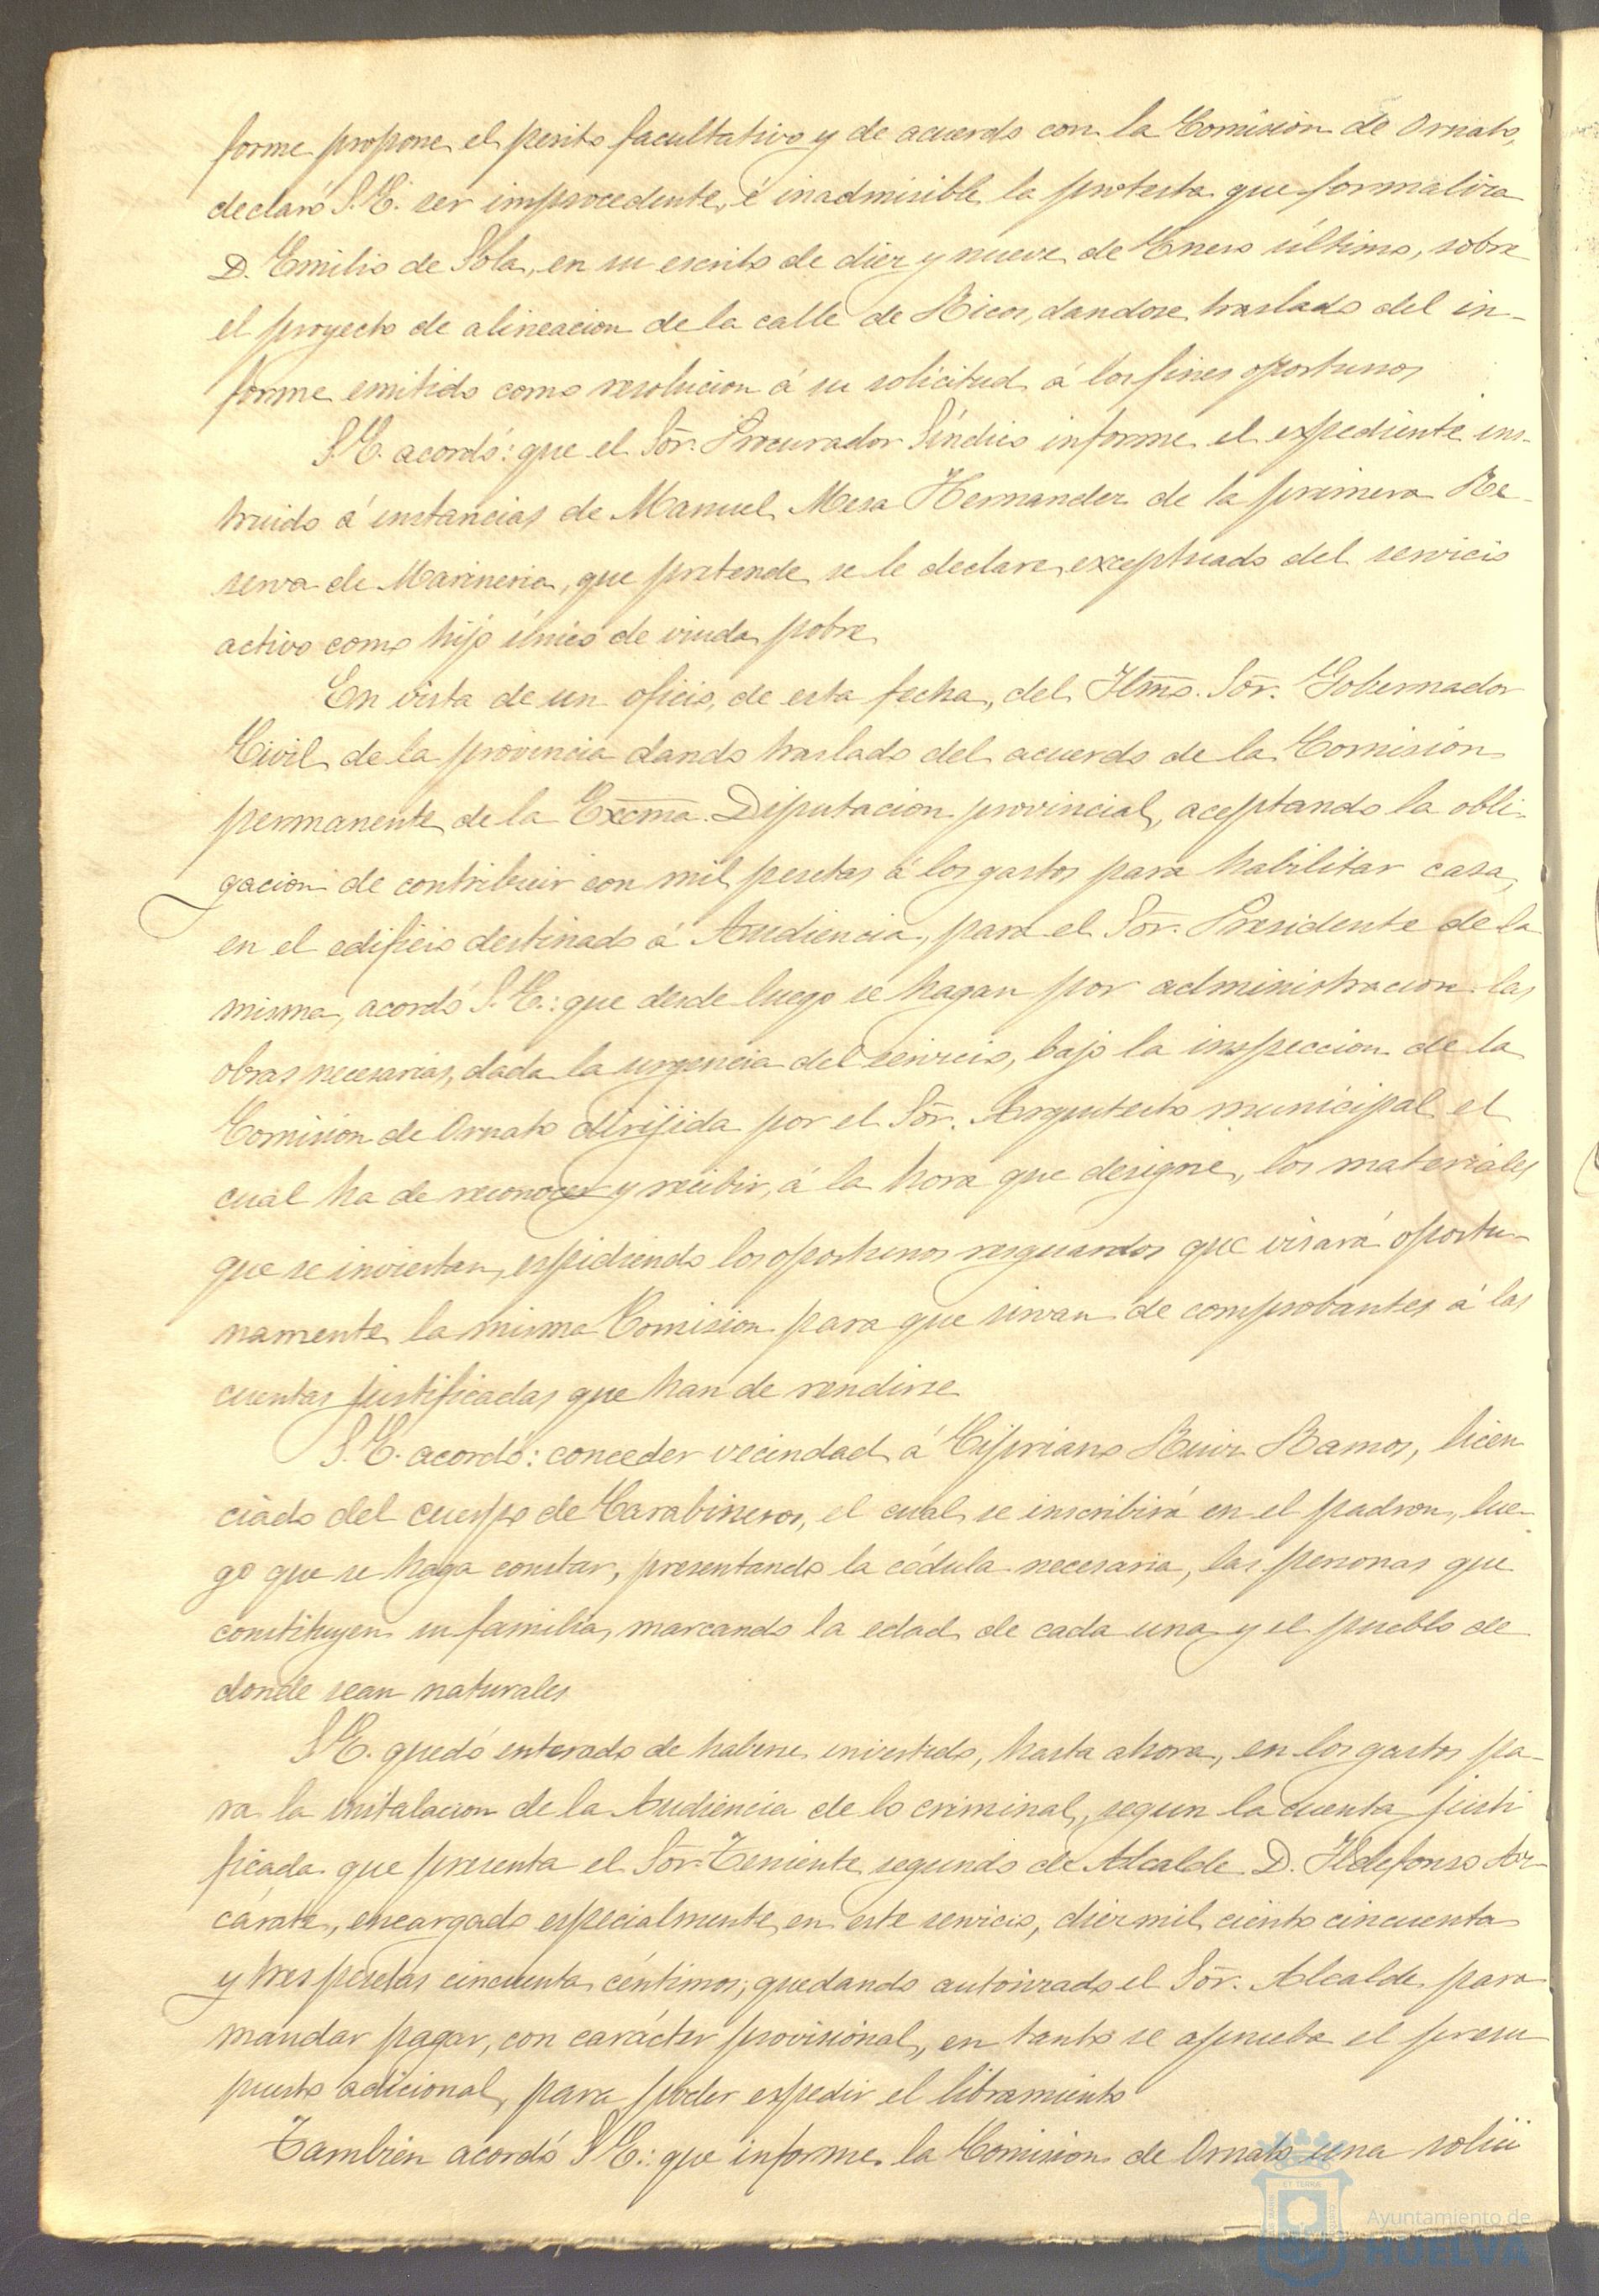 forme propone el perito facultativo y de acuerdo con la Comision de Ornato,
declaró S.E. ser improcedente é inadmisible la protesta que formaliza
D. Emilio de Sola, en su escrito de diez y nueve de Enero último, sobre
el proyecto de alineacion de la calle de Ricos, dandose traslado del in-
forme emitido como resolucion á su solicitud á los fines oportunos
S.E. acordó: que el Sōr. Procurador Síndico informe el expediente ins-
truido á instancias de Manuel Mesa Hernandez de la primera Re-
serva de Marineria, que pretende se le declare exceptuado del servicio
activo como hijo único de viuda pobre
En vista de un oficio, de esta fecha, del Ilmo. Sōr. Gobernador
Civil de la provincia dando traslado del acuerdo de la Comisión
permanente de la Excma. Diputacion provincial, aceptando la obli-
gacion de contribuir con mil pesetas á los gastos para habilitar casa,
en el edificio destinado á Audiencia, para el Sōr. Presidente de la
misma, acordó S.E.: que desde luego se hagan por administracion las
obras necesarias, dada la urgencia del servicio, bajo la inspeccion de la
Comisión de Ornato dirijida por el Sōr. Arquitecto municipal el
cual ha de reconocer y recibir, á la hora que designe, los materiales
que se inviertan, espidiendo los oportunos resguardos que visará oportu-
namente la misma Comision para que sirvan de comprobantes á las
cuentas justificadas que han de rendirse
S.E. acordó: conceder vecindad á Cipriano Ruiz Ramos, licen
ciado del cuerpo de Carabineros, el cual se inscribirá en el padron, lue-
go que se haga constar, presentando la cédula necesaria, las personas que
constituyen su familia, marcando la edad de cada una y el pueblo de
donde sean naturales
S.E. quedó enterado de haberse invertido, hasta ahora, en los gastos pa-
ra la instalacion de la Audiencia de lo criminal, segun la cuenta justi
ficada que presenta el Sōr. Teniente segundo de Alcalde D. Ildefonso Az-
cárate, encargado especialmente en este servicio, diez mil ciento cincuenta
y tres pesetas cincuenta céntimos; quedando autorizado el Sōr. Alcalde para
mandar pagar, con carácter provisional, en tanto se aprueba el presu
puesto adicional, para poder espedir el libramiento
Tambien acordó S.E.: que informe la Comision de Ornato una solici
Ayuntamiento de
HUELVA